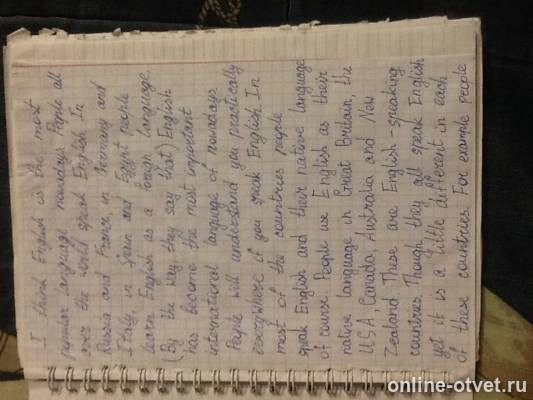 I think English is the most
popular language nowadays. People all
over the world speak English. In
Russia and France, in Germany and
Italy, in Spain and Egypt people
learn English as a foreign language.
(By the way, they say that) English
has become the most important
international language of nowadays.
People will understand you practically
everywhere if you speak English. In
most of the countries people
speak English and their native language
of course. People use English as their
native language in Great Britain, the
USA, Canada, Australia and New
Zealand. These are English-speaking
countries. Though they all speak English
yet it is a little different in each
of these countries. For example people
online-otvet.ru